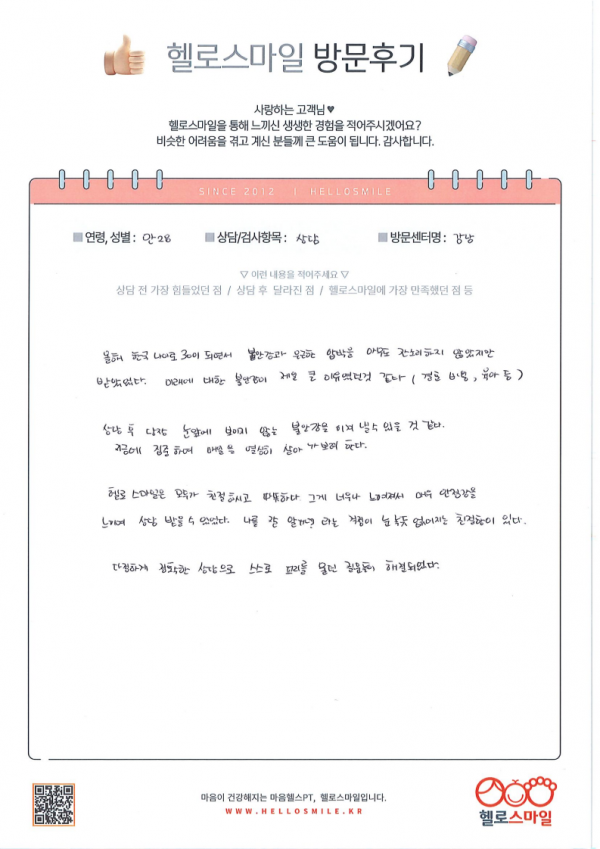 헬로스마일 방문후기
사랑하는 고객님♥
헬로스마일을 통해 느끼신 생생한 경험을 적어주시겠어요?
비슷한 어려움을 겪고 계신 분들께 큰 도움이 됩니다. 감사합니다.
SINCE 2012 | HELLOSMILE
연령, 성별 : 만28 상담/검사항목 : 상담 방문센터명 : 강남
▽ 이런 내용을 적어주세요 ▽
상담 전 가장 힘들었던 점 / 상담 후 달라진 점 / 헬로스마일에 가장 만족했던 점 등
올해 한국 나이로 30이 되면서 불안감과 우울한 압박을 아무도 잔소리하지 않았지만
받았었다. 미래에 대한 불안감이 제일 큰 이유였던것 같다 ( 결혼 비용, 육아 등 )
상담 후 당장 눈앞에 보이지 않는 불안감을 이겨 낼수 있을 것 같다.
지금에 집중하며 매일을 열심히 살아 가보려 한다.
헬로스마일은 모두가 친절하시고 따뜻하다 그게 너무나 느껴져서 매우 안정감을
느끼며 상담 받을 수 있었다. 나를 잘 알까? 라는 걱정이 눈녹듯 없어지는 친절함이 있다.
다정하게 정확한 상담으로 스스로 꼬리를 물던 질문들이 해결되었다.
마음이 건강해지는 마음헬스PT, 헬로스마일입니다.
WWW.HELLOSMILE.KR
헬로스마일